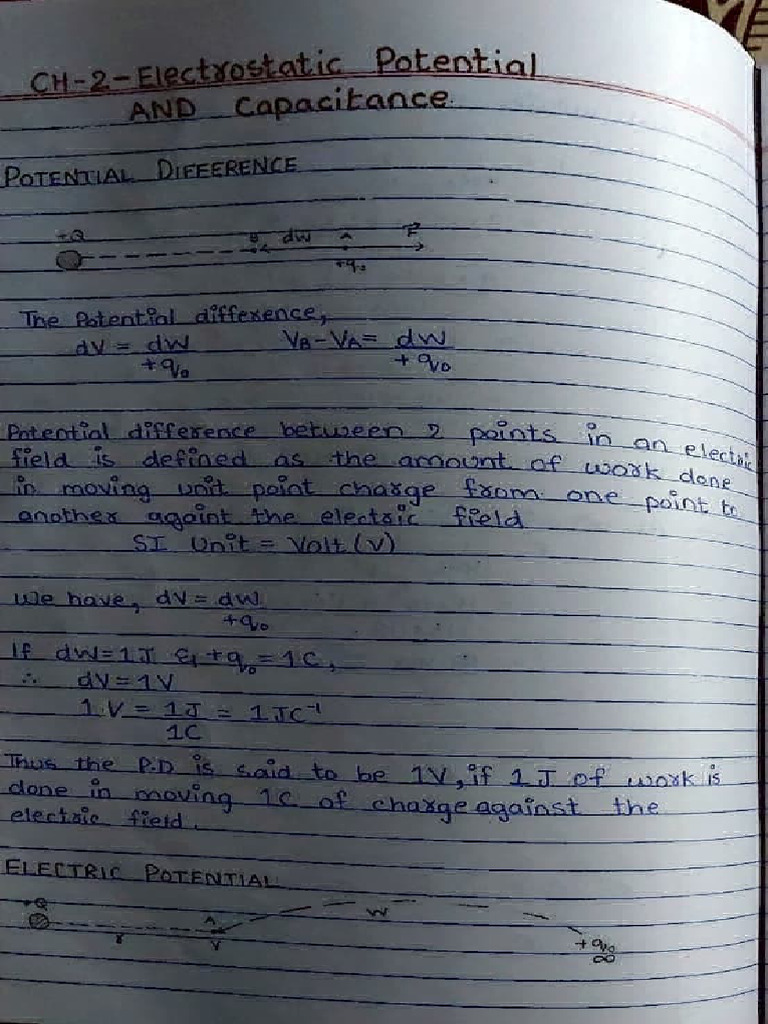 CH-2-Electrostatic Potential
AND Capacitance.
POTENTIAL DIFFERENCE
+Q B dW A F
+q₀
The Potential difference,
dV = dW VB-VA= dW
+q₀ +q₀
Potential difference between 2 points in an electric
field is defined as the amount of work done
in moving unit point charge from one point to
another againt the electric field
SI Unit = Volt (V)
We have, dV = dW
+q₀
If dW=1J & +q₀ = 1C,
∴ dV=1V
1V = 1J = 1JC⁻¹
1C
Thus the P.D is said to be 1V, if 1 J of work is
done in moving 1C of charge against the
electric field.
ELECTRIC POTENTIAL
+Q A W
r V +q₀
∞